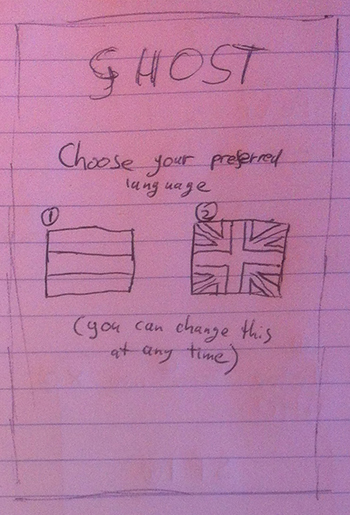 GHOST
Choose your preferred
language
1 2
(you can change this
at any time)